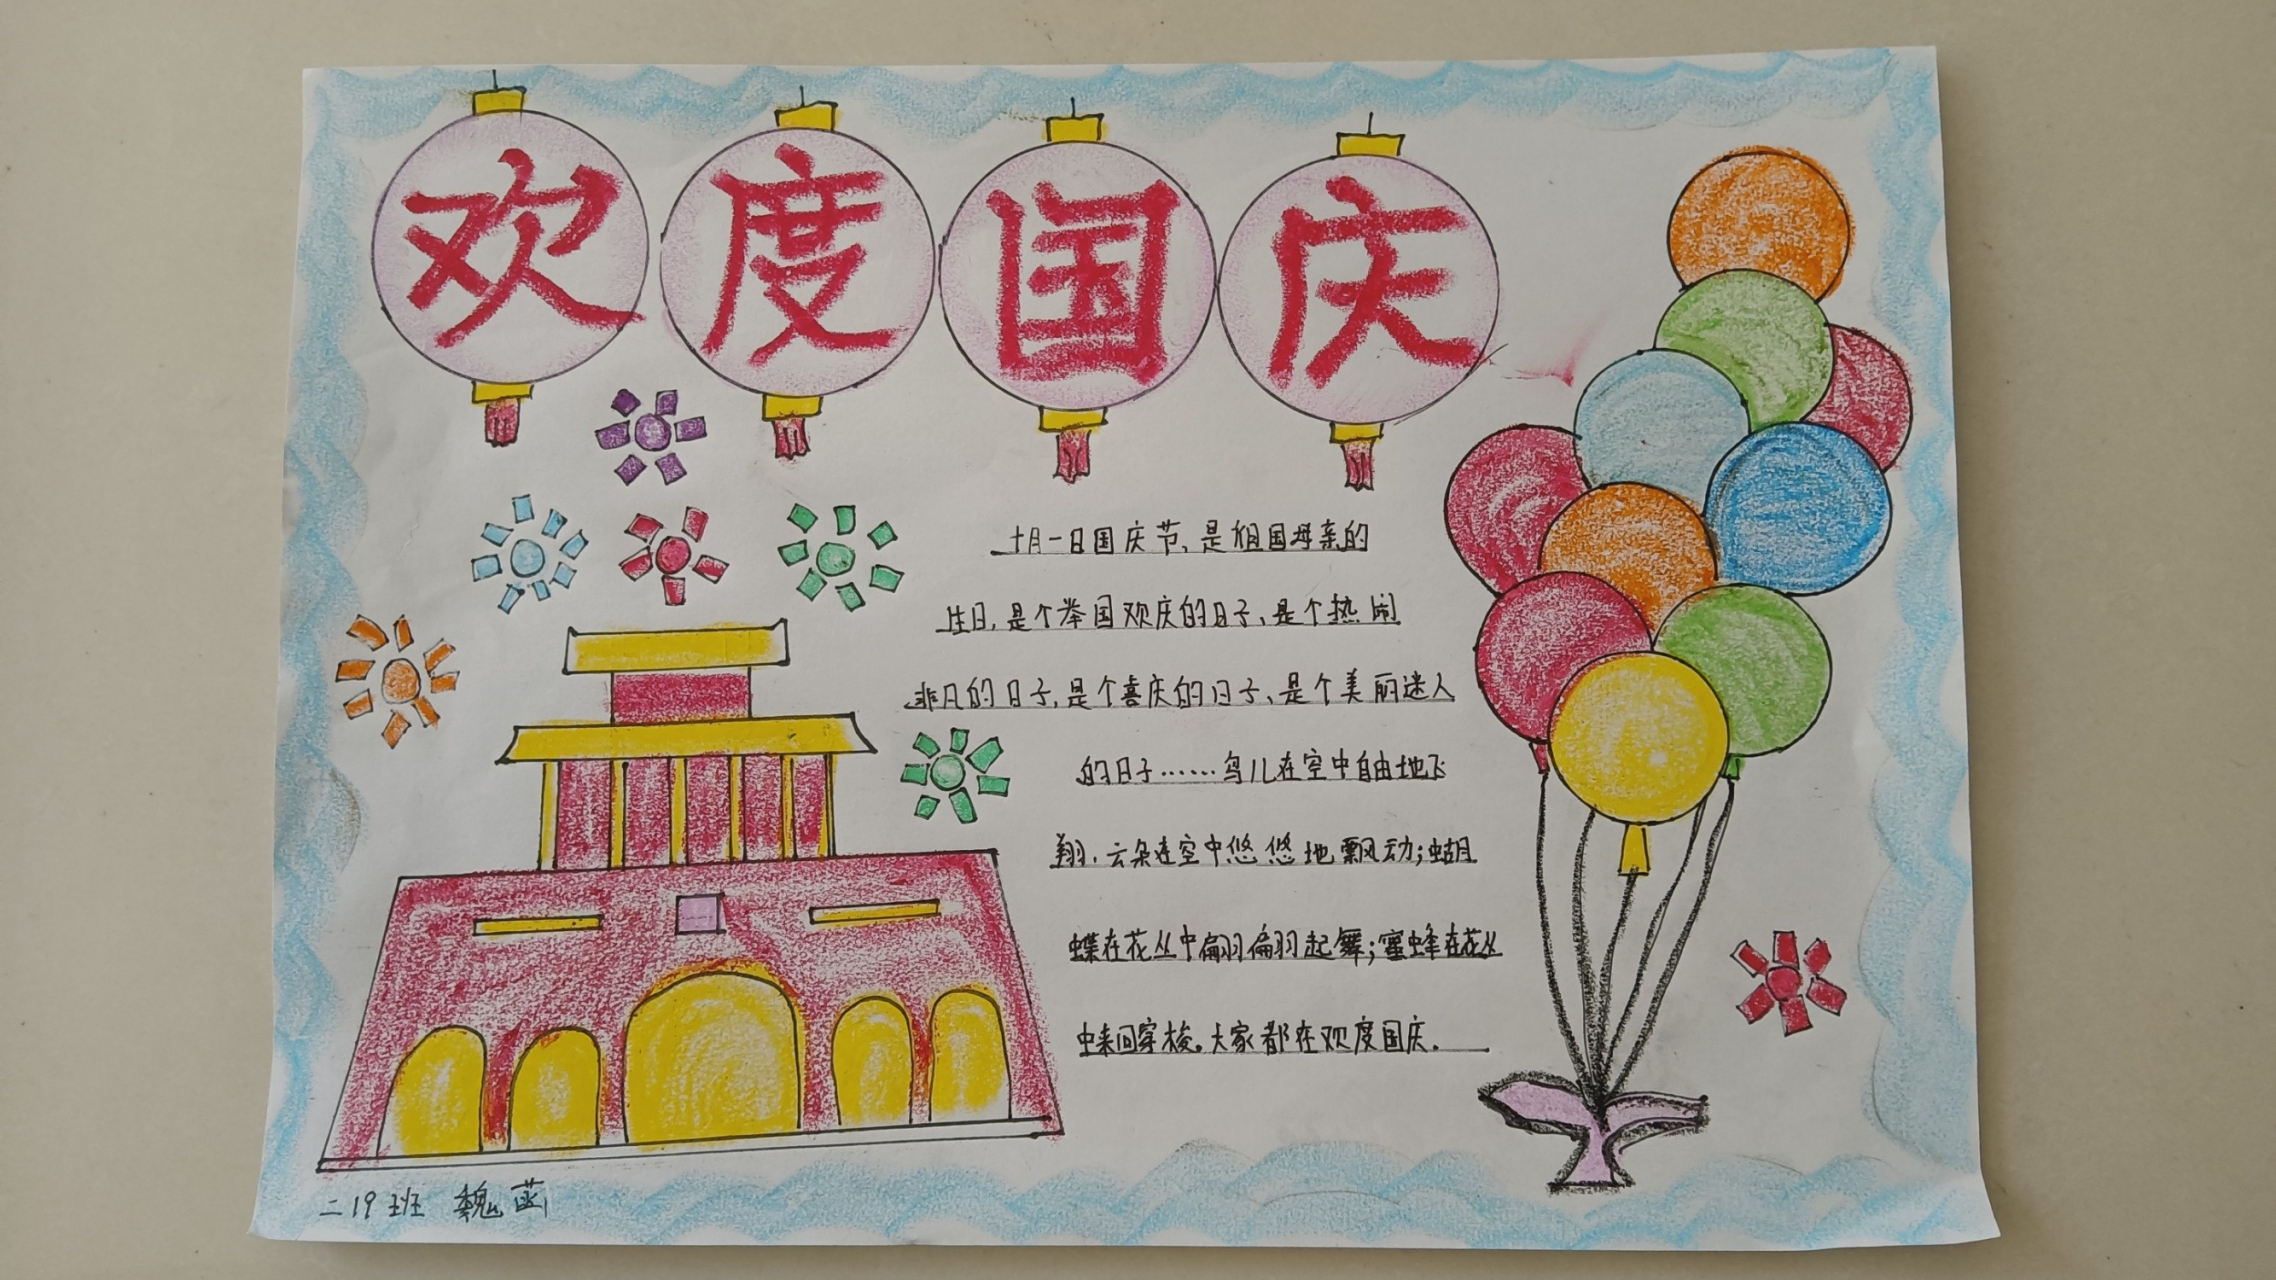 欢度国庆
十月一日国庆节,是祖国母亲的
生日,是个举国欢庆的日子、是个热闹
非凡的日子,是个喜庆的日子、是个美丽迷人
的日子……鸟儿在空中自由地飞
翔,云朵在空中悠悠地飘动;蝴
蝶在花丛中翩翩起舞;蜜蜂在花丛
中来回穿梭。大家都在欢度国庆.
二19班 魏菡